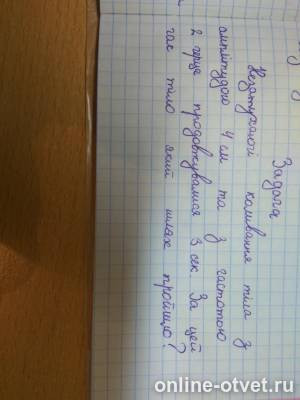 Задача
Незатухаючі коливання тіла з
амплітудою 4 см та з частотою
2 герца продовжувалися 3 сек. За цей
час тіло який шлях пройшло?
online-otvet.ru